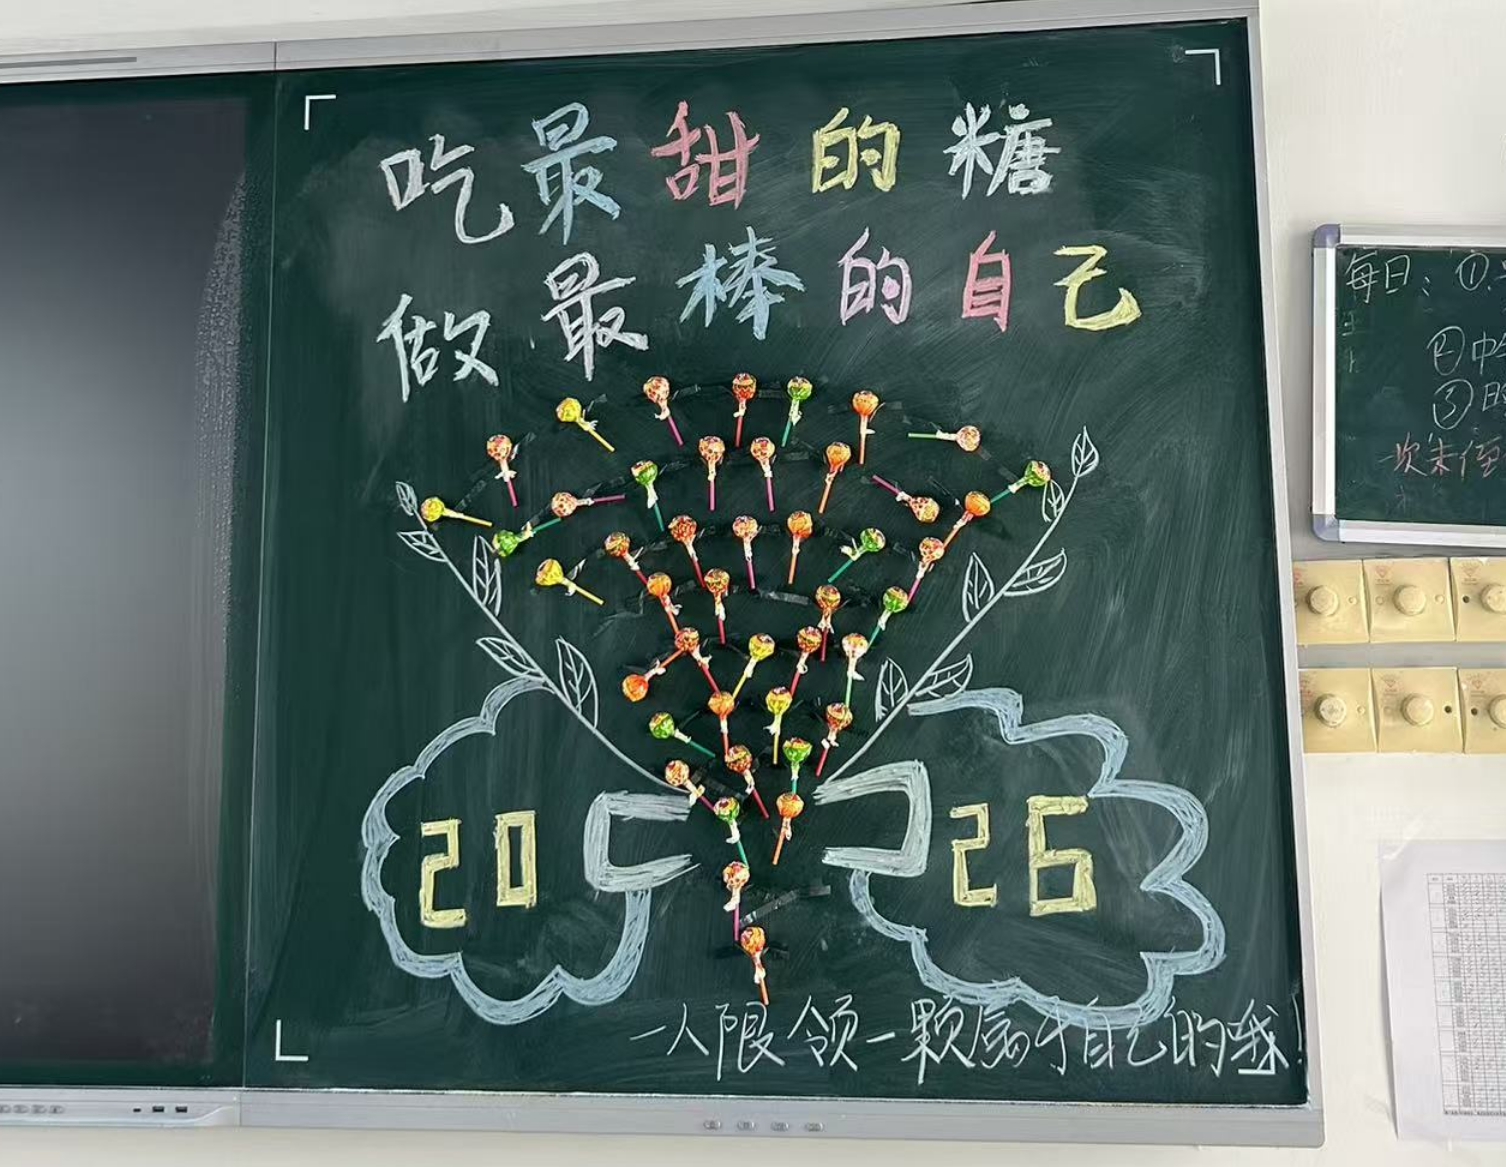 吃最甜的糖
做最棒的自己
20 26
一人限领一颗属于自己的哦!
每日：①
②中午
③日
一次未值